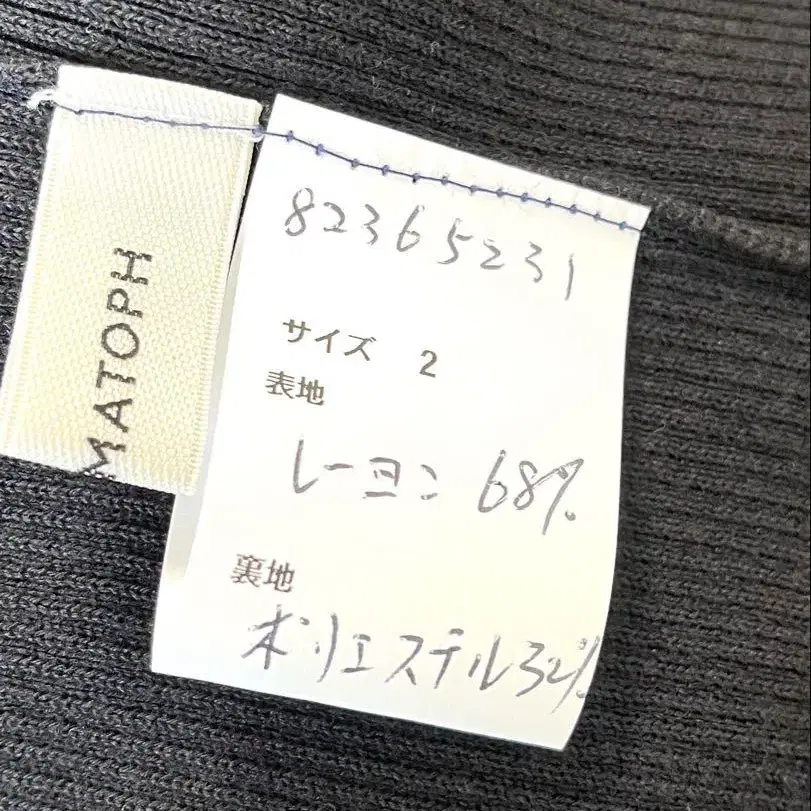 MATOPH
82365231
サイズ 2
表地
レーヨン 68%
裏地
ポリエステル32%